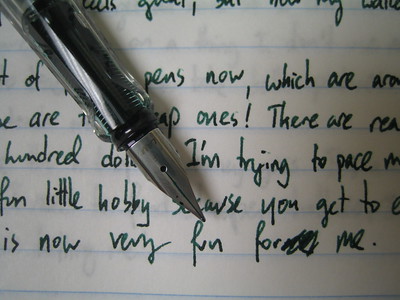 feels good, but now my walle
t of pens now, which are aro
e are cheap ones! There are rea
hundred dol I'm trying to pace m
fun little hobby because you get to e
is now very fun for me.